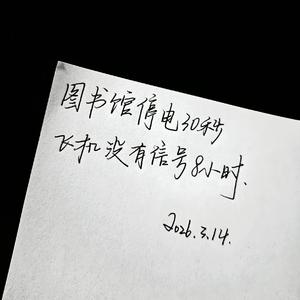 图书馆停电30秒
飞机没有信号8小时.
2026.3.14.